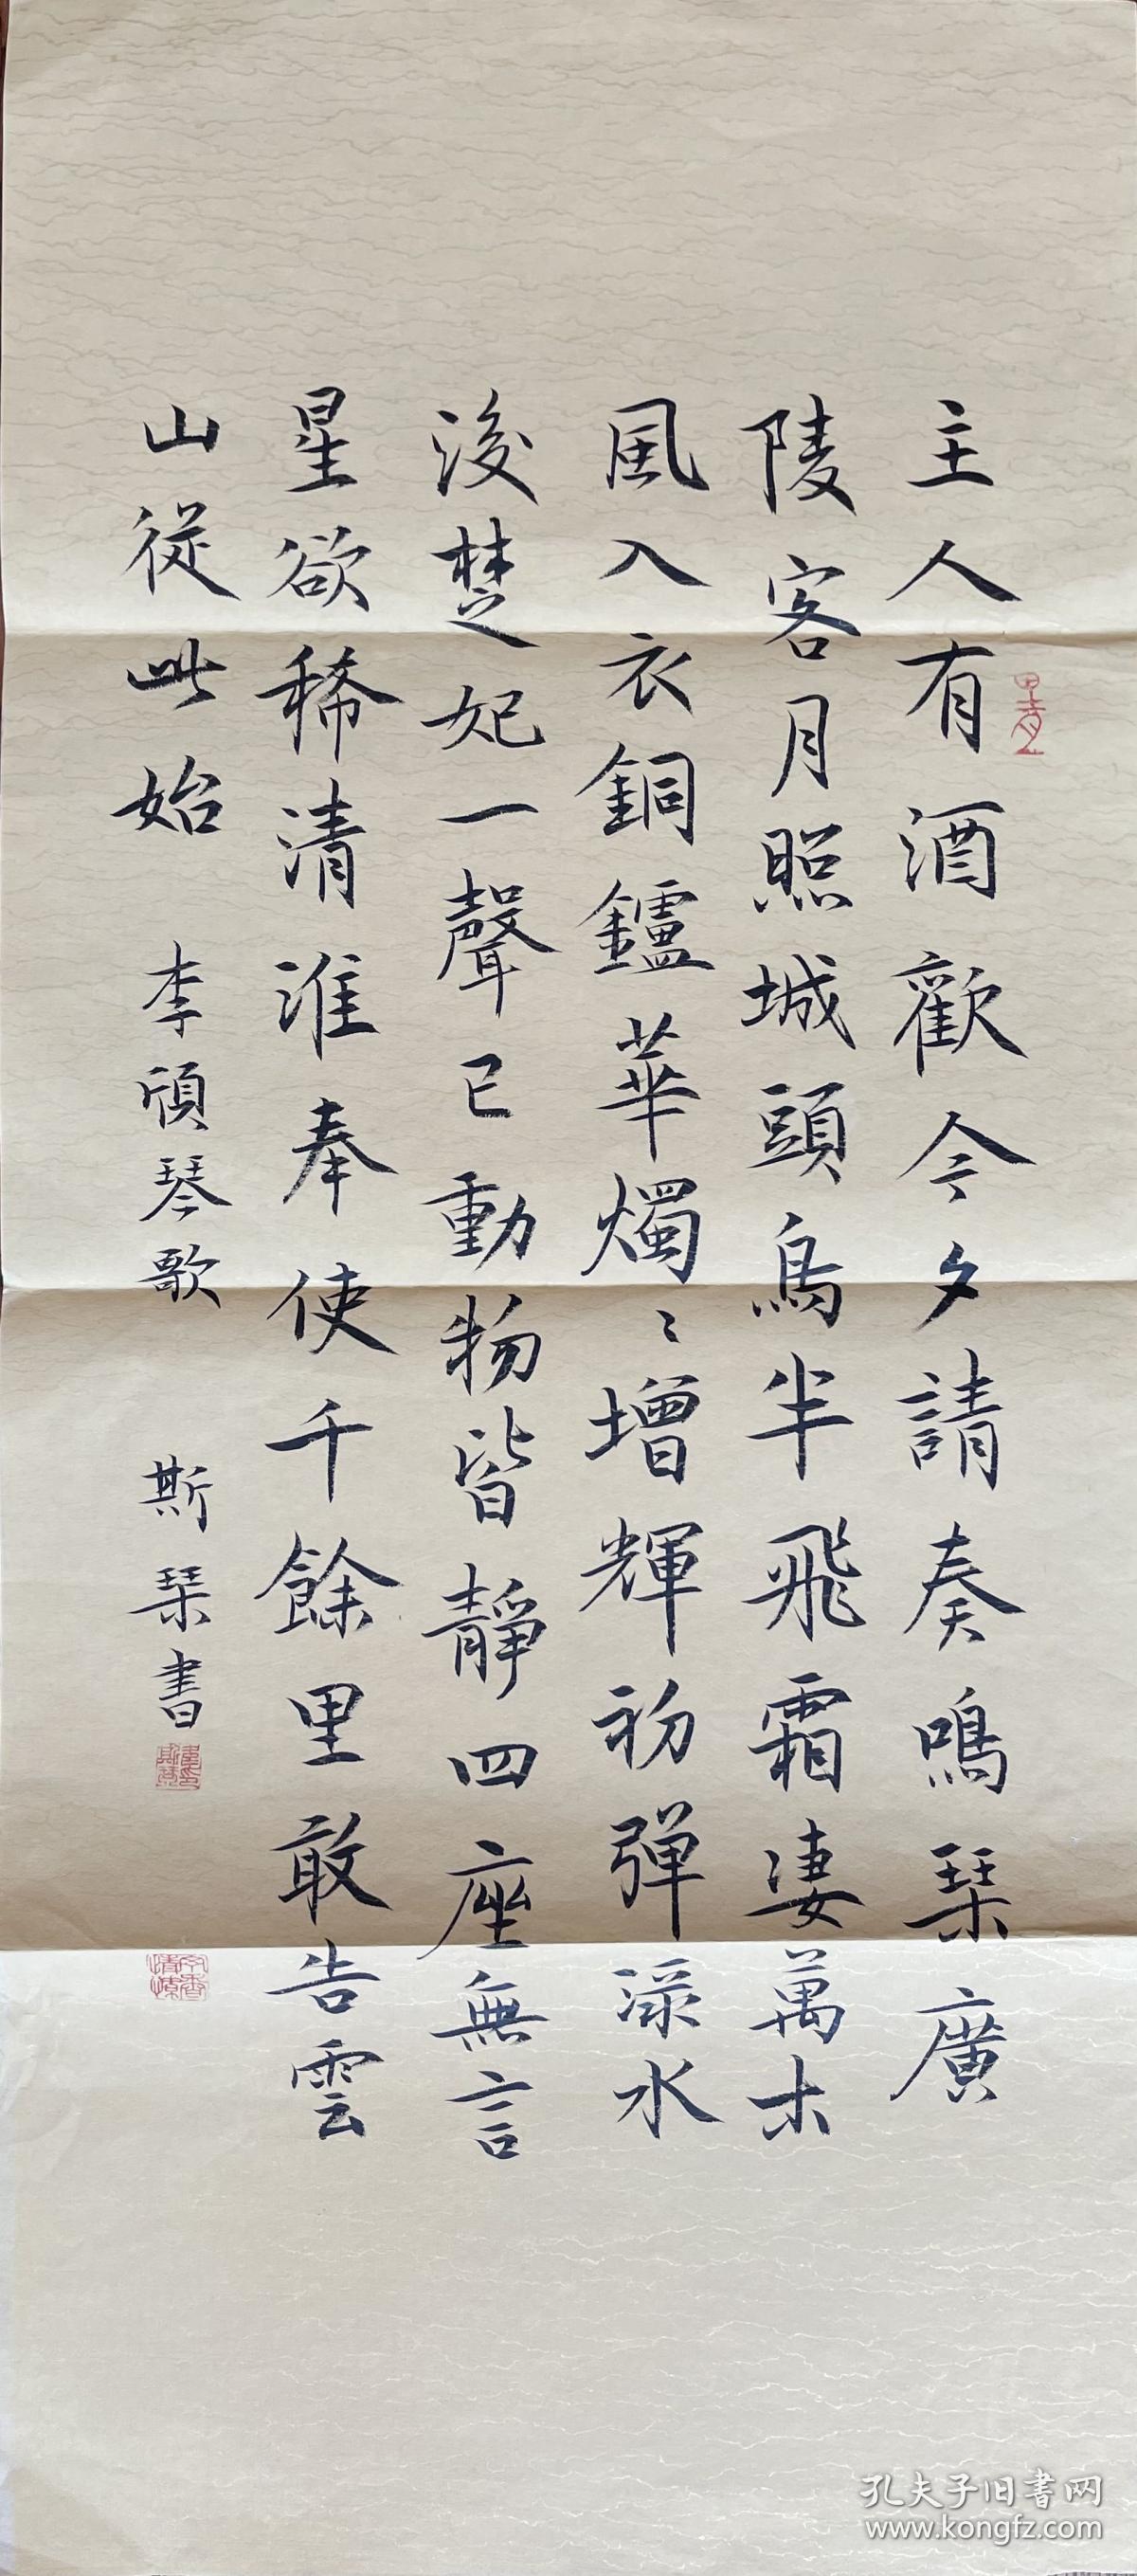 主人有酒歡今夕請奏鳴琹廣
陵客月照城頭烏半飛霜凄萬木
風入衣銅鑪華燭〻增輝初弹渌水
後楚妃一聲已動物皆靜四座無言
星欲稀清淮奉使千餘里敢告雲
山從此始 李頎琴歌 斯琹書
孔夫子旧书网
www.kongfz.com